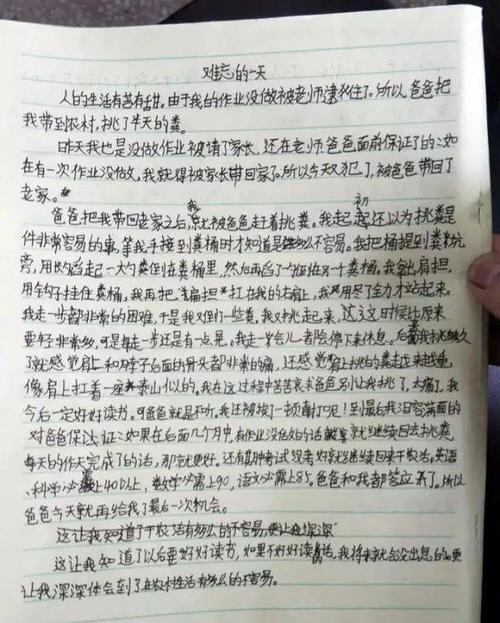 难忘的一天
人的生活有苦有甜。由于我的作业没做被老师逮住了。所以爸爸把
我带到农村,挑了半天的粪。
昨天我也是没做作业被请了家长,还在老师爸爸面前保证了的:如
在有一次作业没做,我就得被家长带回家了。所以今天又犯了,被爸爸带回了
老家。
爸爸把我带回老家之后,我就被爸爸赶着挑粪。我起初还以为挑粪是
件非常容易的事,等我手接到粪桶时才知道是多么不容易。我把桶提到粪坑
旁,用长勺舀起一大勺粪倒在粪桶里,然后再舀了勺在另一个粪桶。我拿出肩担,
用钩子挂住粪桶。我再把扁担扛在我的右肩上,我用尽了全力才站起来。
我走一步都非常的困难,于是我又倒了一些粪。我又挑走起来,这时候比原来
要轻非常多,可是每走一步还是有一点晃。我走一会儿都会停下来休息。后我挑越久
了就感觉肩上和脖子后面的骨头都非常的痛,还感觉肩上挑的粪走来越重,
像肩上扛着一座泰山似的。我在这过程中苦苦哀求爸爸别让我挑了,太痛了,我
今后一定好好读书。可爸爸就是不听,我还被挨了一顿毒打呢!到最后我泪容满面的
对爸爸保证:如果在后面几个月中,有作业没做的话就继续回去挑粪,
每天的作天完成了的话,那就更好。还有期考试没考好就继续回来干农活。英语、
科学必需上40以上,数学必需上90,语文必需上85。爸爸和我都答应了。所以
爸爸今天就再给我了最后一次机会。
这让我知道了干农活有多么的不容易,更让我深深
这让我知道了以后要好好读书,如果不好好读书话,我将来就会没出息的。更
让我深深体会到了农村生活有多么的不容易。